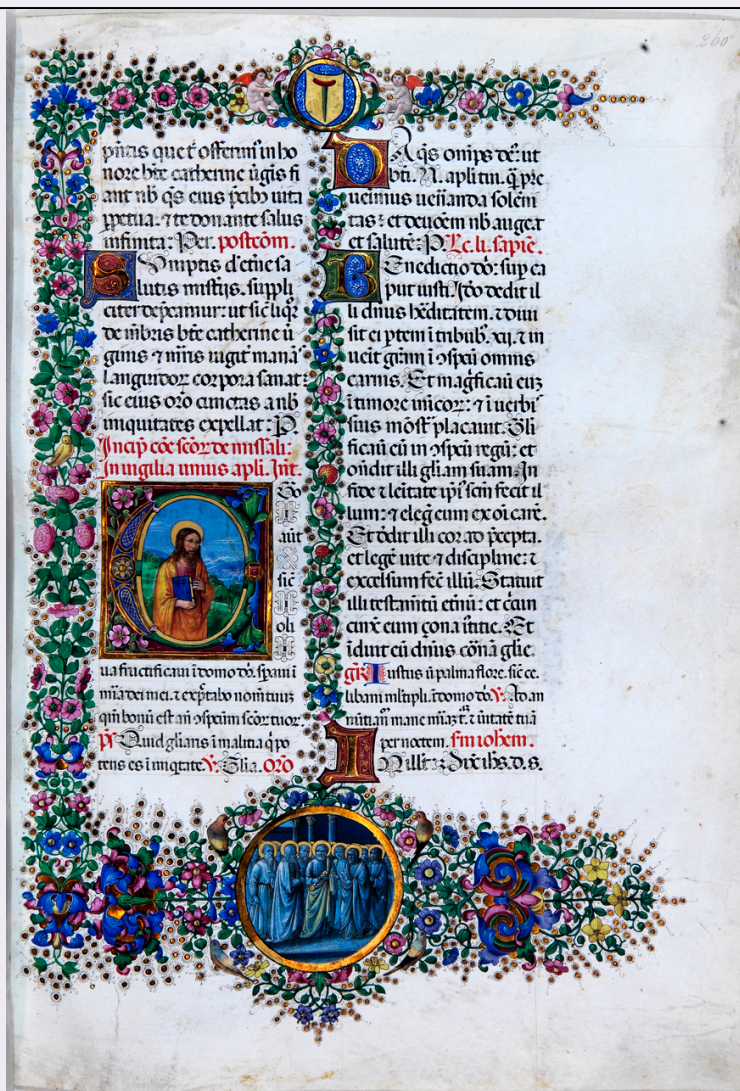 200
T
pñtis que t̃ offerim̃ in ho
nore bt̃e catherine ũgis fi
ant nb̃ q̃s eius p̃cib̃o uita
ppetua: ⁊ te donante salus
infinita: Per. postcõm.
Sumptis d'etñe sa
lutis mistĩjs. suppli
citer dep̃camur: ut sic̃ liq̃z
de m̃bris bt̃e catherine ũ
ginis ⁊ m̃ris iugit̃ manã
languidoꝝ corpora sanat:
sic eius oro cunctas a nb̃
iniquitates expellat: P
Incip̃ cõe sc̃oꝝ de missali:
In uigilia unius apli. Int̃.
Ego
aũt
sic̃
oli
ua fructificaui i domo dõ. spaui i
mĩa dei mei. ⁊ exp̃tabo nom̃ tuuz
qm̃ bonũ est añ ↄspcũm sc̃oꝝ tuoꝝ.
p̃s Quid gl̃iaris i malitia q̃ po
tens es i iniq̃tate. ꝟ. Gl̃ia. Oro
DA q̃s om̃ps de᷒: ut
bt̃i. N. apl̃i tui. q̃ pre
uenimus ueñanda solem̃
tas: et deuoc̃em nb̃ augeat
et salutẽ: P Lc̃. li. sapiẽ.
Benedictio dõ: sup ca
put iusti. Iõo dedit il
li dñus h̃editatem. ⁊ diui
sit ei p̃tem i tribub̃. xij. ⁊ in
uẽit gr̃am i ↄspcũ omnis
carnis. Et mag̃ficaũ euz
i timore inicoꝝ: ⁊ i uerbis
suis mõst̃ placauit. Gl̃i
ficaũ eũ in ↄspcũ regũ: et
oñdit illi gl̃iam suam. In
fide ⁊ leĩtate ip̃i sc̃m fecit il
lum: ⁊ eleg̃ eum ex õi carẽ.
Et dẽdit illi cor ad p̃cepta.
et legẽ uite ⁊ discipline: ⁊
excelsum fec̃ illũ. Statuit
illi testam̃tũ etñu: et c̃cũ
cinx̃ eum çona iũtitie. Et
iduit eũ dñus cõnã gl̃ie.
gr̃. Iustus ũ palma flore. sic̃ ce.
libani ml̃tipli. i domo dõ. ꝟ. Ad an
nũtiañ mane mĩaz t̃. ⁊ ũitatẽ tuã
per noctem. Sm̃ iohem.
In illo t̃. Dix̃ ihs. d. s.